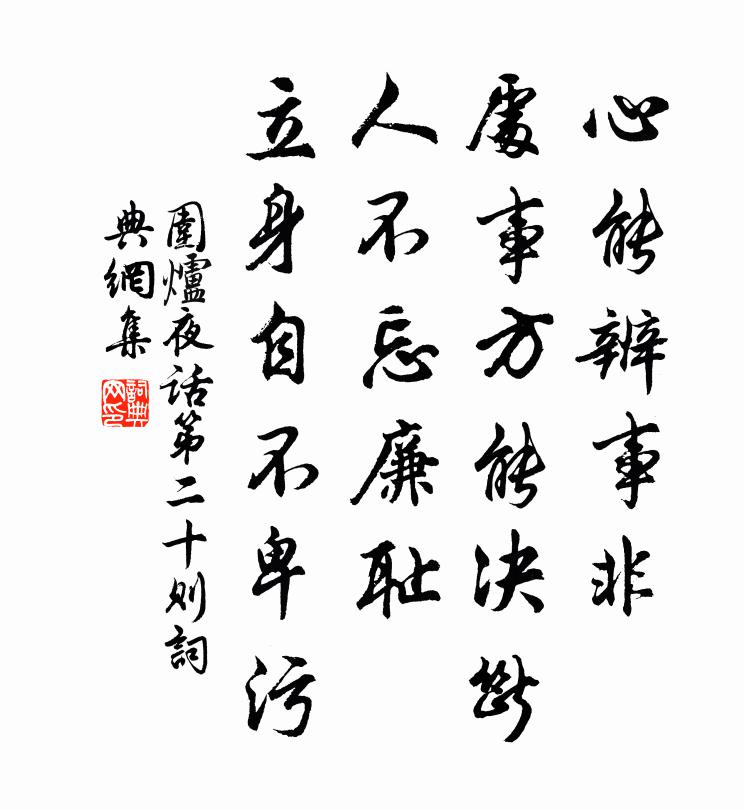 心能辨事非
處事方能決斷
人不忘廉耻
立身自不卑污
圍爐夜話第二十則詞
典網集
詞典
网印